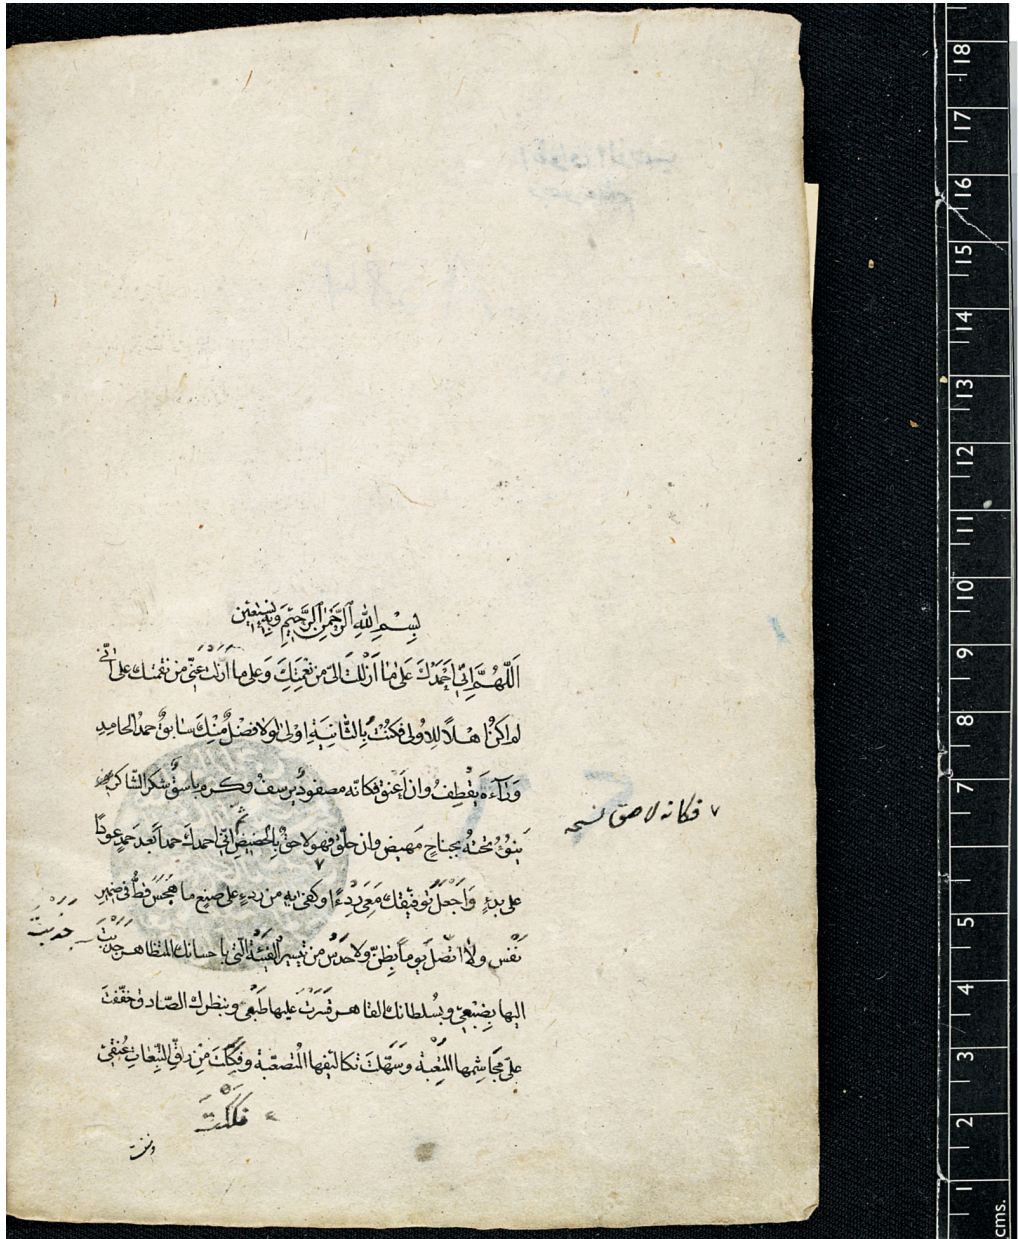 بِسْمِ اللهِ الرَّحْمٰنِ الرَّحِيْمِ وَبِهِ نَسْتَعِيْن
اَللّٰهُمَّ اِنِّي اَحْمَدُكَ عَلىٰ مَا اَزْلَلْتَ اِلَيَّ مِن نِعْمَتِكَ وَعَلى ما اَزَلْتَ عَنِّي مِن نقمتك على اَنِّي
لم اكن اَهْلاً للاُولى فكُنْتُ بِالثَّانِيَةِ اوْلىٰ لولا فضْلٌ مِنْكَ سَابقٌ حمدُ الحامِدِ
وَرَآءَهُ يَقْطِفُ وان اَعْنق فكانّه مصفودٌ يرسفُ وكرم باسقٌ شكر الشّاكر
يَنوُءُ تَحْتَهُ بجناحٍ مَهِيضٍ وان حلّق فهو لاحقٌ بِالحَضِيضِ اني احمدك حمداً بَعدَ حمدٍ عودًا
على بدءٍ وَاجْعَلْ تَوفِيقَكَ مَعِى رِدْءًا وكفىٰ بِهِ من ردءٍ على صنعٍ ما هَجَسَ قطُّ فى ضمير
نَفْس ولا اتّصلَ يوماً بِظنّ ولا حَدْسٍ من تيسير الفَيْئَةِ التى باحسانك المتظاهر جَذَبْتَ
اليها بِضَبْعِى وبسُلطانك القاهر قَسَرْتَ عليها طَبْعى وبنظرك الصّادق خفّفتَ
عَلَيَّ مَجَاشِمها المُتْعِبَة وَسَهَّلْتَ تكاليفها المُتَصَعّبة وفكَكْتَ مِنْ رِقِّ التَّبِعَاتِ عُنُقِى
فكانه لاحق نسخه
جذبت
فككْتَ